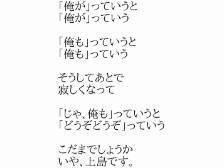 「俺が」っていうと
「俺が」っていう
「俺も」っていうと
「俺も」っていう
そうしてあとで
寂しくなって
「じゃ、俺も」っていうと
「どうぞどうぞ」っていう
こだまでしょうか
いや、上島です。